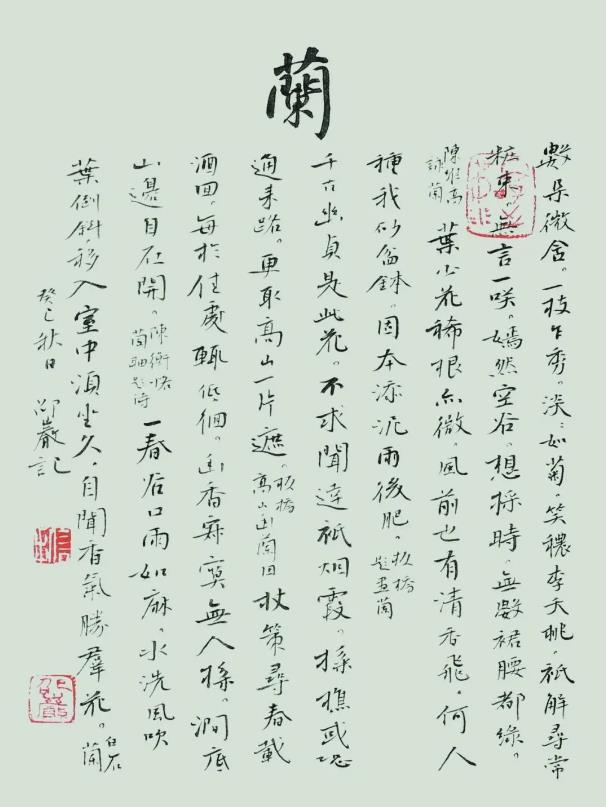 蘭
數朵微含。一枝乍秀。淡:如菊。笑穠李夭桃。祇解尋常
粧束。無言一咲。嫣然空谷。想採時。無數裙腰都綠。
陳維嵩詠蘭 葉少花稀根亦微。風前也有清香飛。何人
種我砂盆鉢。固本添泥雨後肥。板橋題畫蘭
千古幽貞是此花。不求聞達祇烟霞。採樵或恐
通來路。更取高山一片遮。板橋高山幽蘭圖 杖策尋春載
酒回。每於佳處輒低徊。幽香寂寞無人採。澗底
山邊自在開。陳衡恪蘭軸題詩 一春谷口雨如麻。水洗風吹
葉倒斜。移入室中須坐久。自聞香氣勝羣花。白石蘭
癸巳秋日 邵巖記